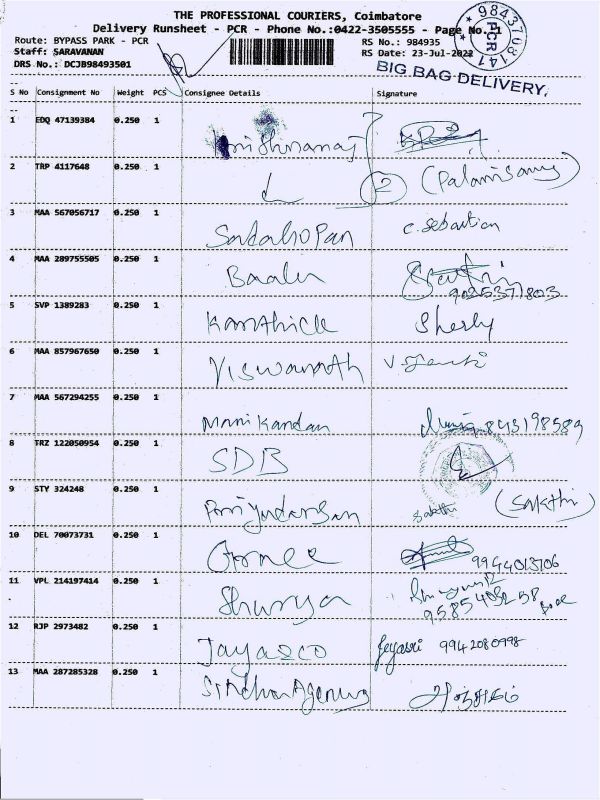 THE PROFESSIONAL COURIERS, Coimbatore
Delivery Runsheet - PCR - Phone No.:0422-3505555 - Page No. 1
Route: BYPASS PARK - PCR RS No.: 984935
Staff: SARAVANAN RS Date: 23-Jul-2022
DRS No.: DCJB98493501
9843708141
PCR
BIG BAG DELIVERY.
S No Consignment No Weight PCS Consignee Details Signature
1 EDQ 47139384 0.250 1
2 TRP 4117648 0.250 1 2 (Palanisamy)
3 MAA 567056717 0.250 1 Sadahopan C. Sebastian
4 MAA 289755505 0.250 1 Baalu
9025371803
5 SVP 1389283 0.250 1 Karthick Sherly
6 MAA 857967650 0.250 1 Viswanath
7 MAA 567294255 0.250 1 Mani Kandan 843198589
8 TRZ 122050954 0.250 1 SDB
9 STY 324248 0.250 1 Priyadarsan Sakthi (Sakthi)
10 DEL 70073731 0.250 1 9944013106
11 VPL 214197414 0.250 1 Shurya
12 RJP 2973482 0.250 1 Jayasco Jeyasri 9942080998
13 MAA 287285328 0.250 1